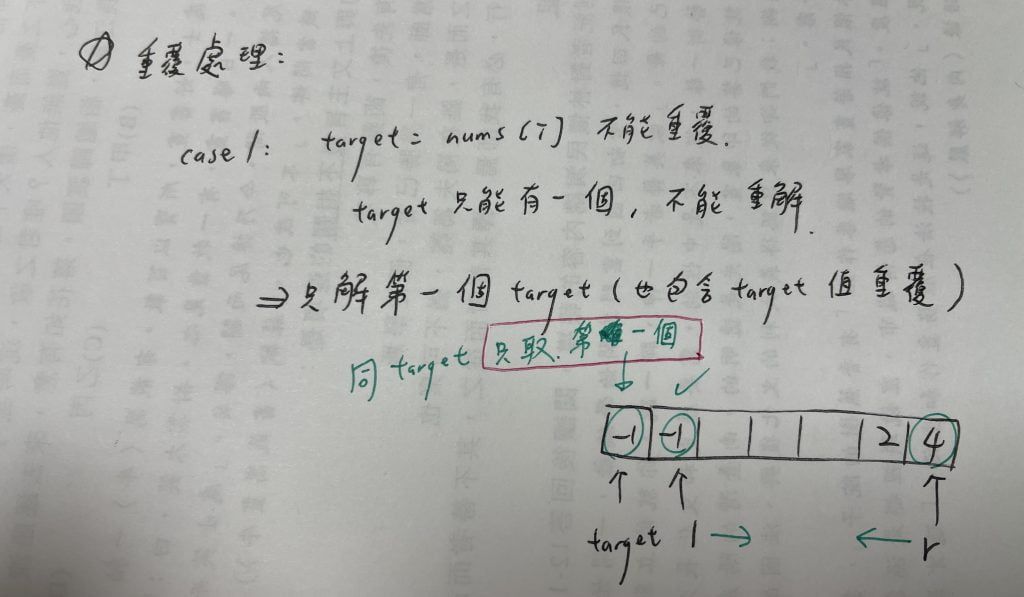 ① 重覆處理:
case 1: target = nums[i] 不能重覆.
target 只能有一個, 不能重解.
⇒ 只解第一個 target (也包含 target 值重覆)
同 target 只取第一個
-1 -1 2 4
target l → ← r